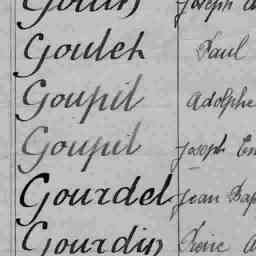 Joseph
Goulet Paul
Goupil Adolphe
Goupil Joseph
Gourdel Jean
Gourdin